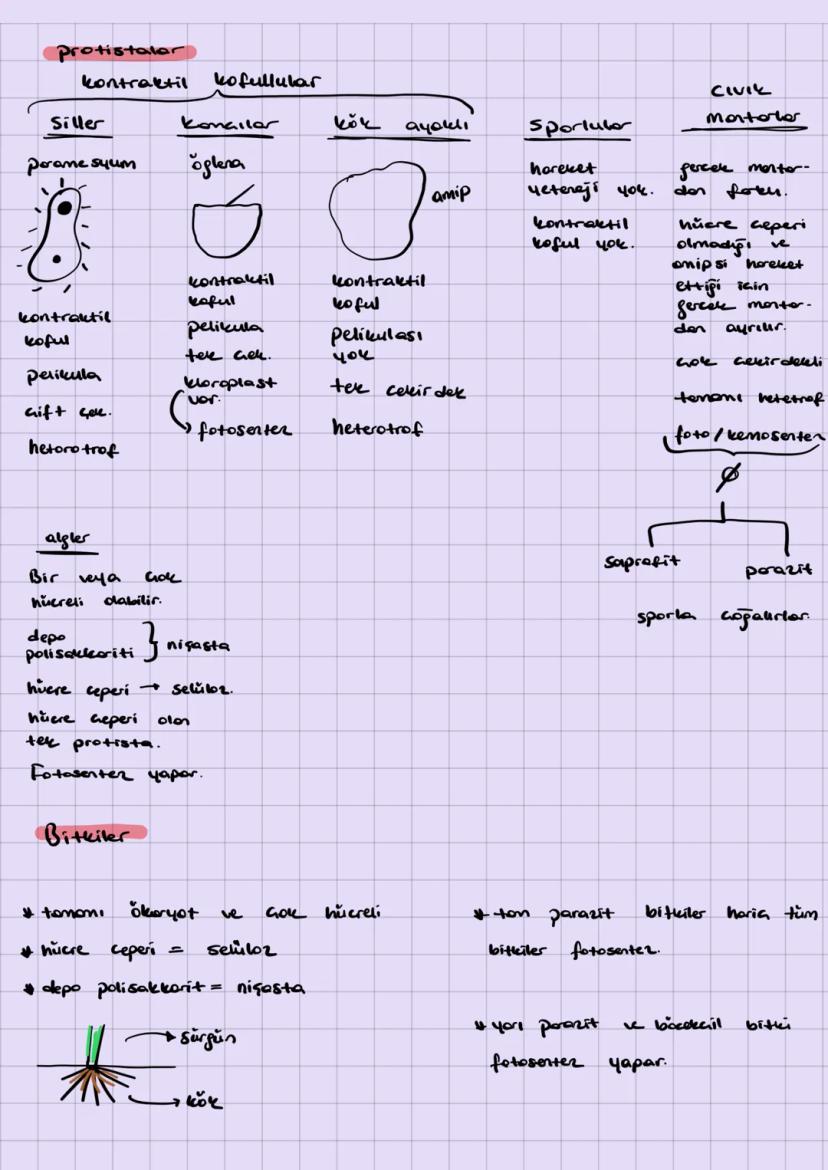 protistalar
kontraktil kofullular
Siller
paramesyum
kontraktil
koful
pelikula
çift çek.
heterotrof
kamçılar
öglena
kontraktil
koful
pelikula
tek çek.
kloroplast
var.
fotosentez
kök ayaklı
amip
kontraktil
koful
pelikulası
yok
tek çekirdek
heterotrof
Sporlular
hareket
yeteneği yok.
kontraktil
koful yok.
cıvık
mantarlar
gerçek mantar-
dan farkı.
hücre çeperi
olmadığı ve
amipsi hareket
ettiği için
gerçek mantar-
dan ayrılır.
çok çekirdekli
tamamı hetetrof
foto/kemosentez
Ø
saprofit
parazit
sporla çoğalırlar.
algler
Bir veya çok
hücreli olabilir.
depo
polisakkariti } nişasta
hücre çeperi → selüloz.
hücre çeperi olan
tek protista.
Fotosentez yapar.
Bitkiler
* tamamı ökaryot ve çok hücreli
* hücre çeperi = selüloz
* depo polisakkarit = nişasta
sürgün
kök
* tam parazit bitkiler hariç tüm
bitkiler fotosentez.
* yarı parazit ve böcekçil bitki
fotosentez yapar.